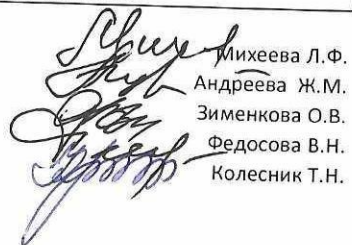 Михеева Л.Ф.
Андреева Ж.М.
Зименкова О.В.
Федосова В.Н.
Колесник Т.Н.